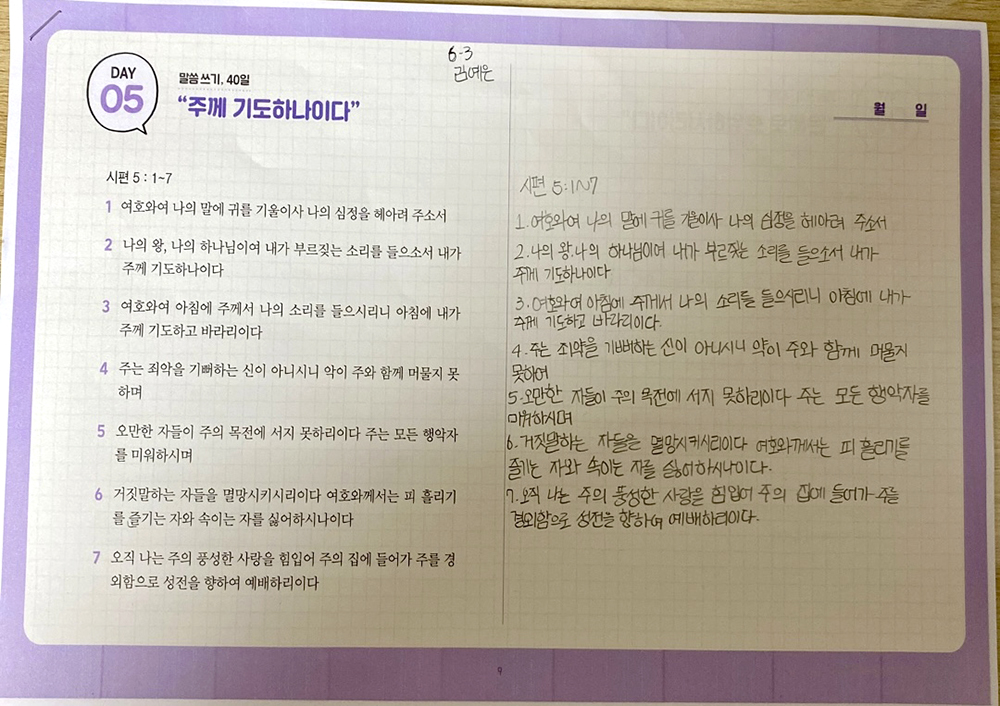 DAY
05
말씀 쓰기, 40일
“주께 기도하나이다”
6-3
김예은
월 일
시편 5 : 1~7
1 여호와여 나의 말에 귀를 기울이사 나의 심정을 헤아려 주소서
2 나의 왕, 나의 하나님이여 내가 부르짖는 소리를 들으소서 내가
주께 기도하나이다
3 여호와여 아침에 주께서 나의 소리를 들으시리니 아침에 내가
주께 기도하고 바라리이다
4 주는 죄악을 기뻐하는 신이 아니시니 악이 주와 함께 머물지 못
하며
5 오만한 자들이 주의 목전에 서지 못하리이다 주는 모든 행악자
를 미워하시며
6 거짓말하는 자들을 멸망시키시리이다 여호와께서는 피 흘리기
를 즐기는 자와 속이는 자를 싫어하시나이다
7 오직 나는 주의 풍성한 사랑을 힘입어 주의 집에 들어가 주를 경
외함으로 성전을 향하여 예배하리이다
시편 5:1~7
1. 여호와여 나의 말에 귀를 기울이사 나의 심정을 헤아려 주소서
2. 나의 왕.나의 하나님이여 내가 부르짖는 소리를 들으소서 내가
주께 기도하나이다
3. 여호와여 아침에 주께서 나의 소리를 들으시리니 아침에 내가
주께 기도하고 바라리이다.
4. 주는 죄악을 기뻐하는 신이 아니시니 악이 주와 함께 머물지
못하여
5. 오만한 자들이 주의 목전에 서지 못하리이다 주는 모든 행악자를
미워하시며
6. 거짓말하는 자들을 멸망시키시리이다 여호와께서는 피 흘리기를
즐기는 자와 속이는 자를 싫어하시나이다.
7. 오직 나는 주의 풍성한 사랑을 힘입어 주의 집에 들어가 주를
경외함으로 성전을 향하여 예배하리이다.
9